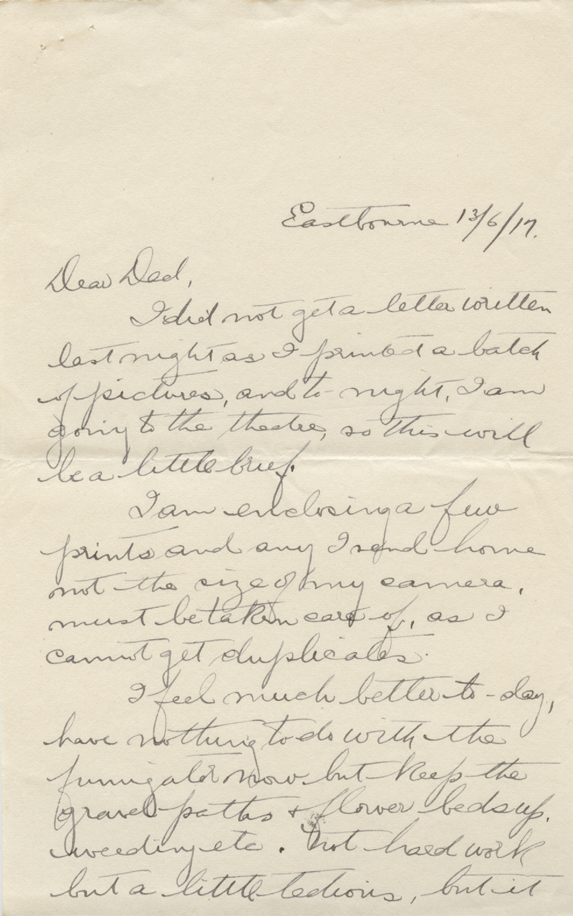 Eastbourne 13/6/17.
Dear Dad,
I did not get a letter written
last night as I printed a batch
of pictures, and to-night, I am
going to the theatre, so this will
be a little brief.
I am enclosing a few
prints and any I send home
not the size of my camera,
must be taken care of, as I
cannot get duplicates.
I feel much better to-day,
have nothing to do with the
fumigator now but keep the
gravel paths & flower beds up,
weeding etc. Not hard work
but a little tedious, but it